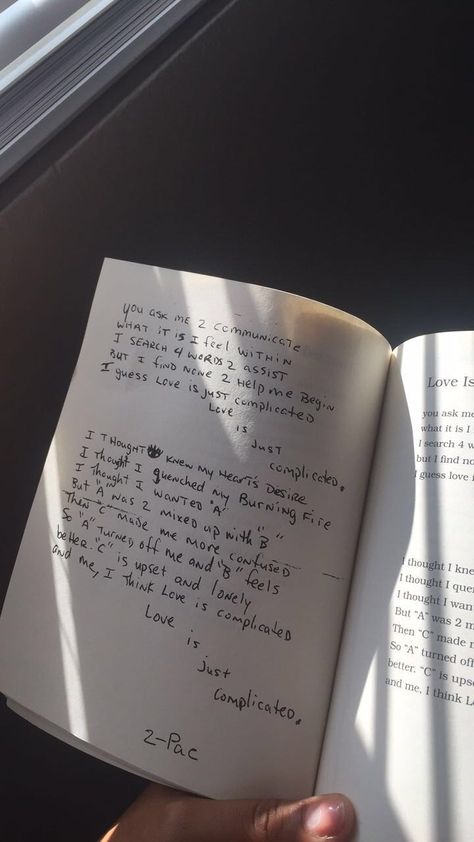 you ask me 2 communicate
what it is I feel within
I search 4 words 2 assist
but I find none 2 help me begin
I guess love is just complicated
Love
is
just
complicated.
I thought I knew my heart's desire
I thought I quenched my Burning Fire
I thought I wanted "A"
But "A" was 2 mixed up with "B"
Then "C" made me more confused
So "A" turned off me and "B" feels
better. "C" is upset and lonely
and me, I think Love is complicated
Love
is
just
complicated.
2-Pac
Love Is
you ask me
what it is I
I search 4
but I find no
I guess love i
I thought I kne
I thought I que
I thought I wan
But "A" was 2 m
Then "C" made
So "A" turned o
better. "C" is upse
and me, I think L